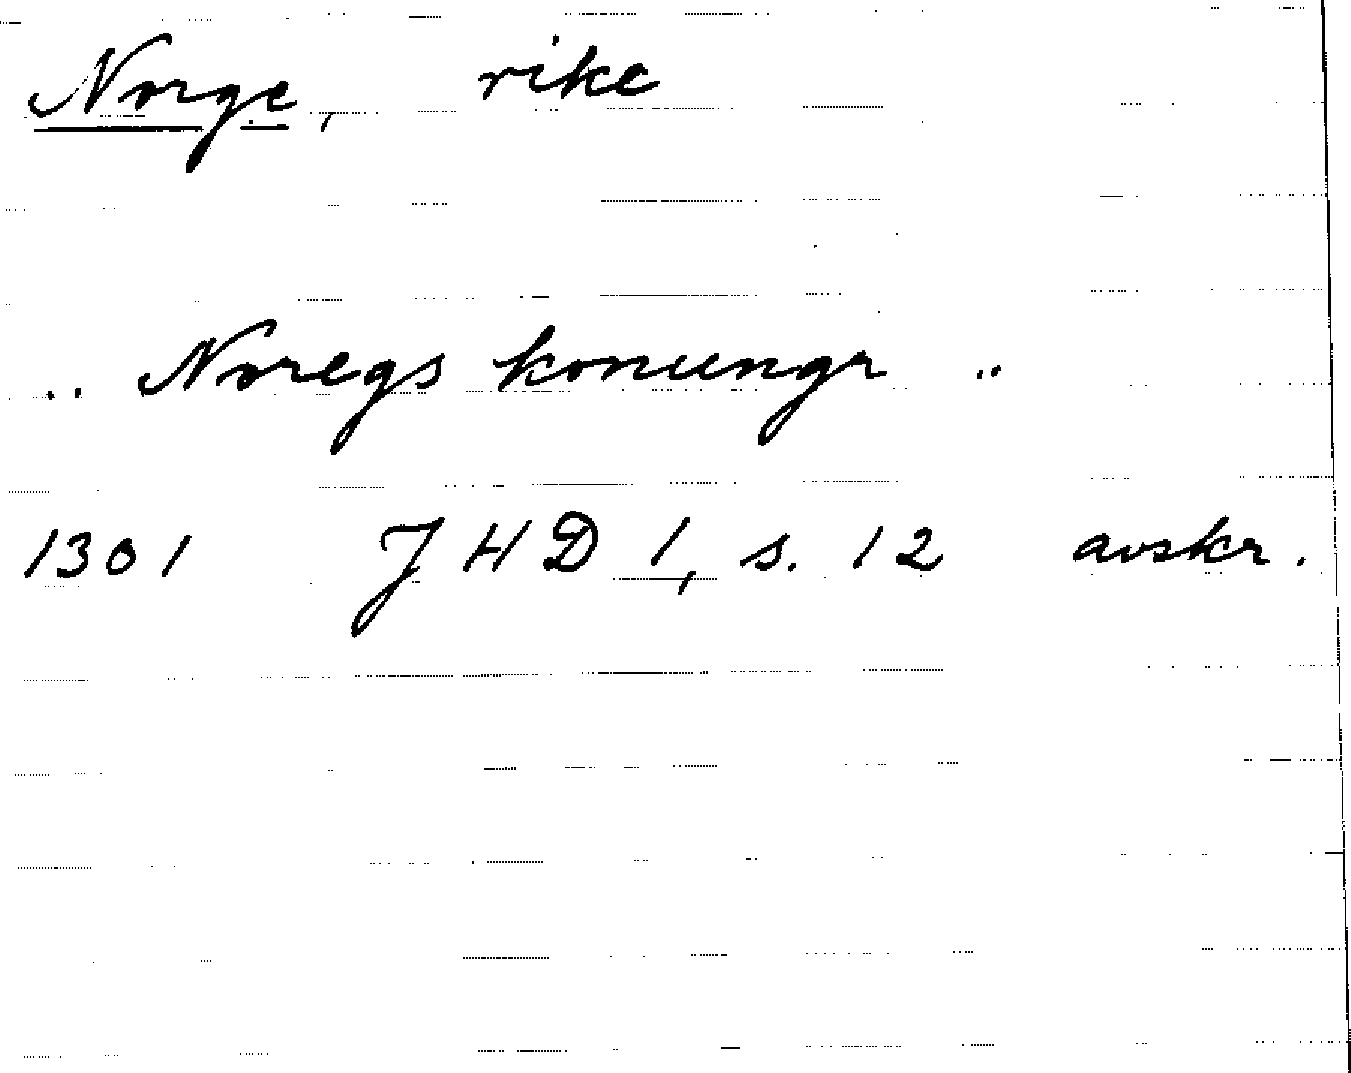 Norge, rike
.. Noregs konungr ..
1301 JHD 1, s. 12 avskr.